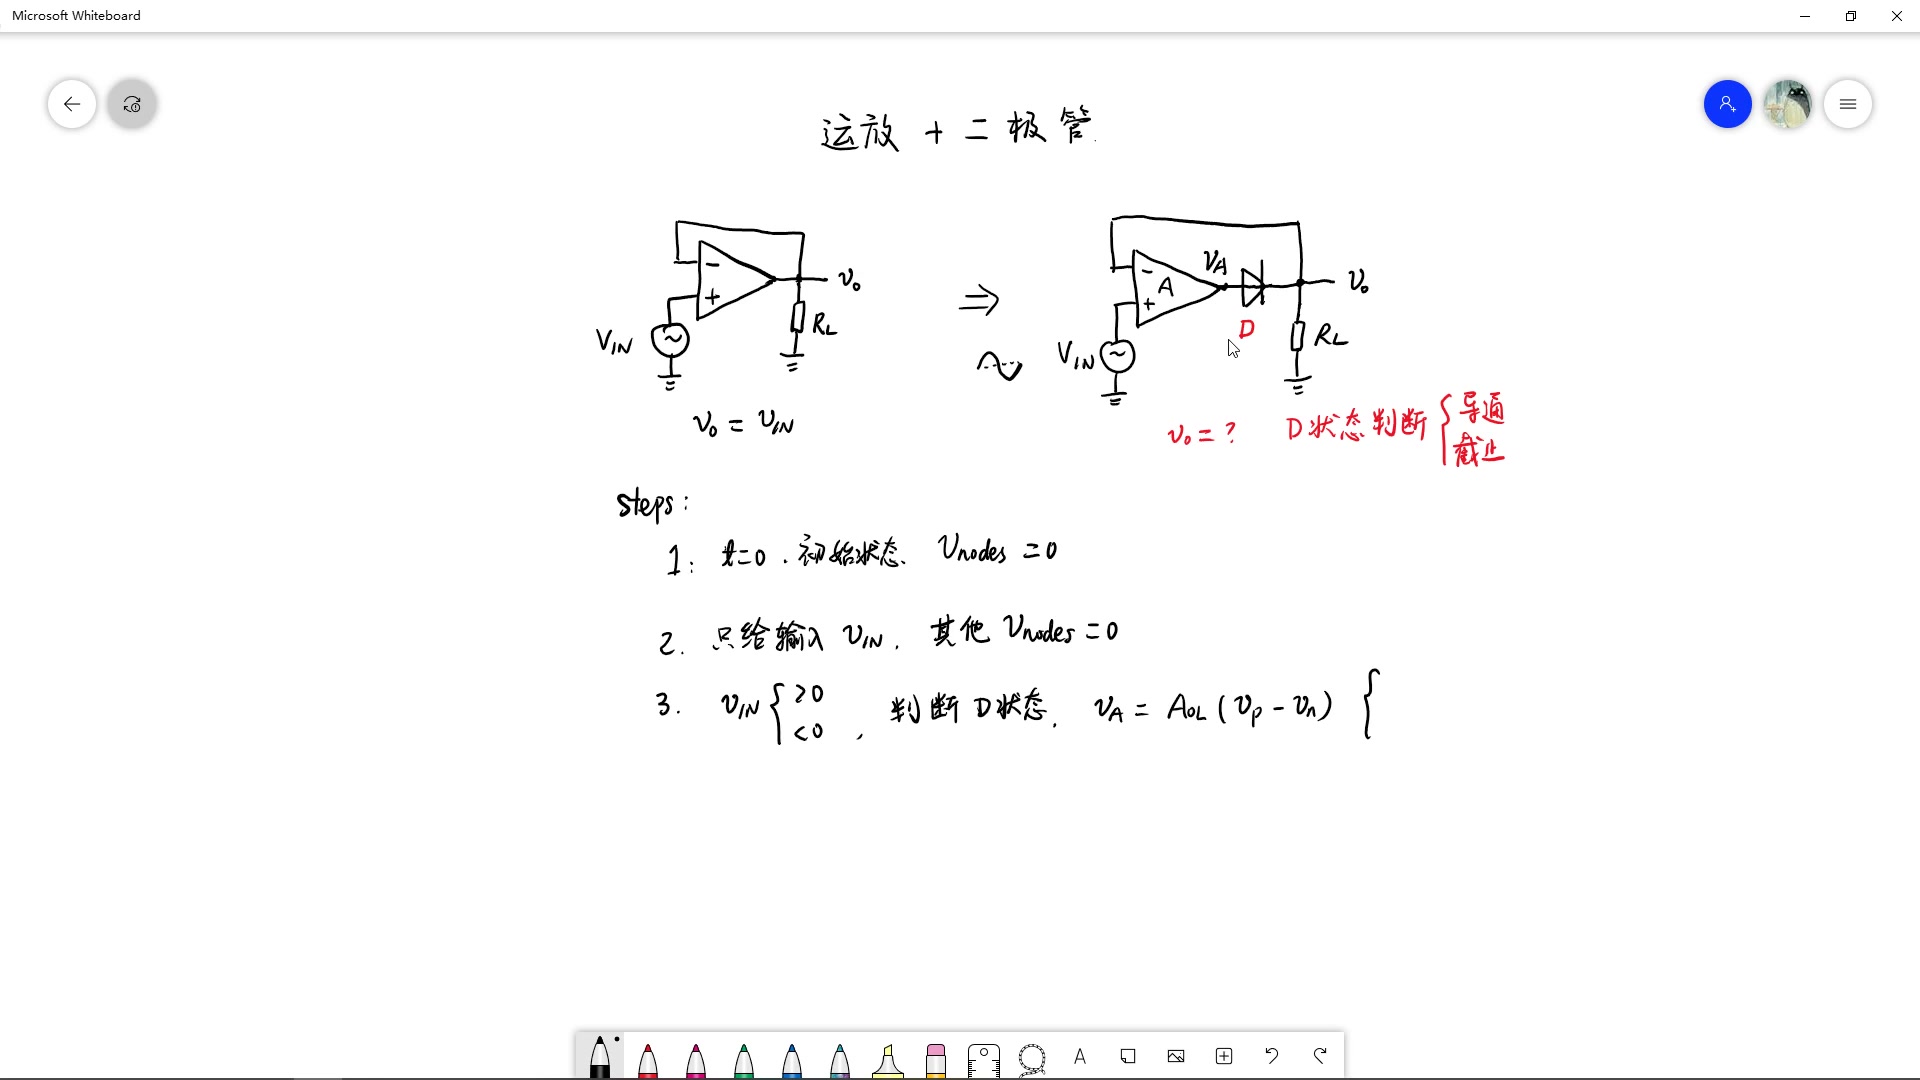 Microsoft Whiteboard
运放 + 二极管.
- + V₀ V_IN R_L
⇒
- + A V_A D V₀ V_IN R_L
V₀ = V_IN
V₀ = ? D状态判断 { 导通 截止
steps:
1: t=0 . 初始状态. V_nodes = 0
2. 只给输入 V_IN . 其他 V_nodes = 0
3. V_IN { >0 <0 , 判断 D状态. V_A = A_OL ( V_p - V_n ) {
A